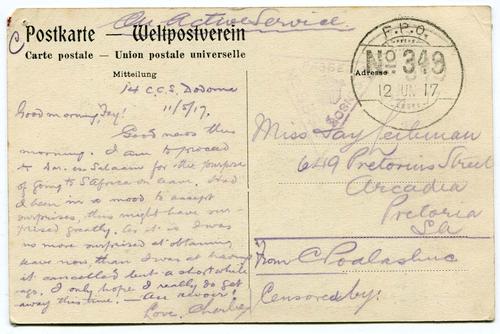 On Active Service
Postkarte — Weltpostverein
Carte postale — Union postale universelle
Mitteilung
Adresse
F.P.O.
No 349
12 JUN 17
14 C.C.S. Dodoma
11/5/17.
Good morning, Fay!
Good news this
morning. I am to proceed
to Dar-es-Salaam for the purpose
of going to S Africa on leave. Had
I been in a mood to accept
surprises, this might have sur-
prised greatly. As it is I was
no more surprised at obtaining
leave now than I was at having
it cancelled but a short while
ago. I only hope I really do get
away this time. — Au revoir!
Love. Charlie
Miss Fay
649 Pretorius Street
Arcadia
Pretoria
SA
From C
Censored by: